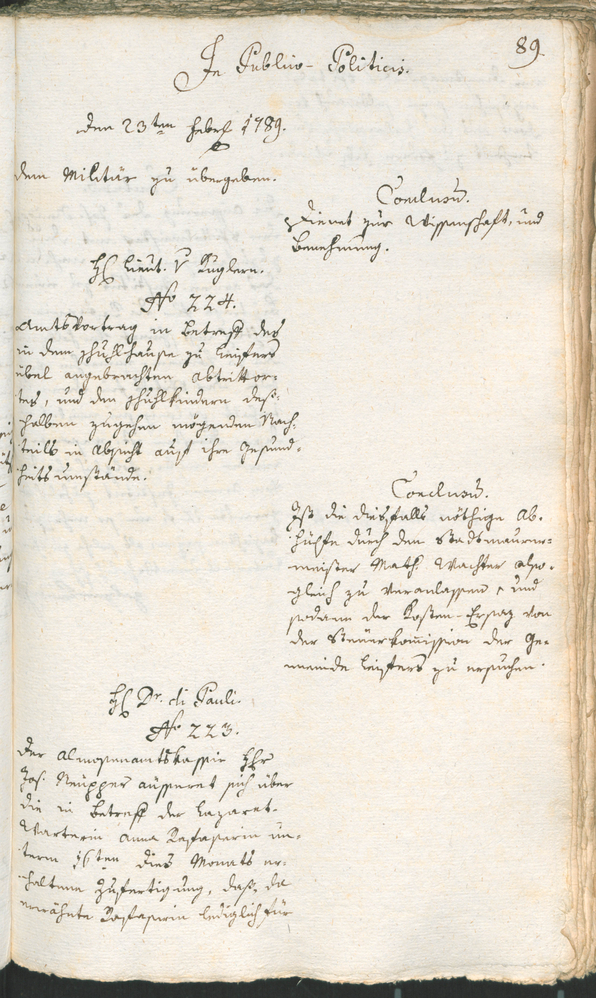 89.
In Publico-Politicis.
den 23ten Febr. 1789.
dem Militär zu übergeben.
Conclusum.
Dienet zur Wissenschaft, und
Benehmung.
H. Lieut. v Kuglern.
No 224.
Amtsvortrag in Betreff des
in dem Schuhlhause zu Leifers
übel angebrachten Abtrittor-
tes, und den Schuhlkindern des-
halben zugehen mögenden Nach-
teils in Absicht auf ihre Gesund-
heitsumstände.
Conclusum.
Ist die diesfalls nöthige Ab-
hülfe durch den Stadtmaurer-
meister Math. Wachter also-
gleich zu veranlassen, und
sodann der Kosten-Ersaz von
der Steuerkommission der Ge-
meinde Leifers zu ersuchen.
H. Dr. di Pauli.
No 223.
Der Almosenamtskassir Hr
Jos. äusseret sich über
die in Betreff der Lazaret-
Warterin Anna un-
term 16ten dies Monats er-
haltene Zufertigung, daß die
erwähnte lediglich für